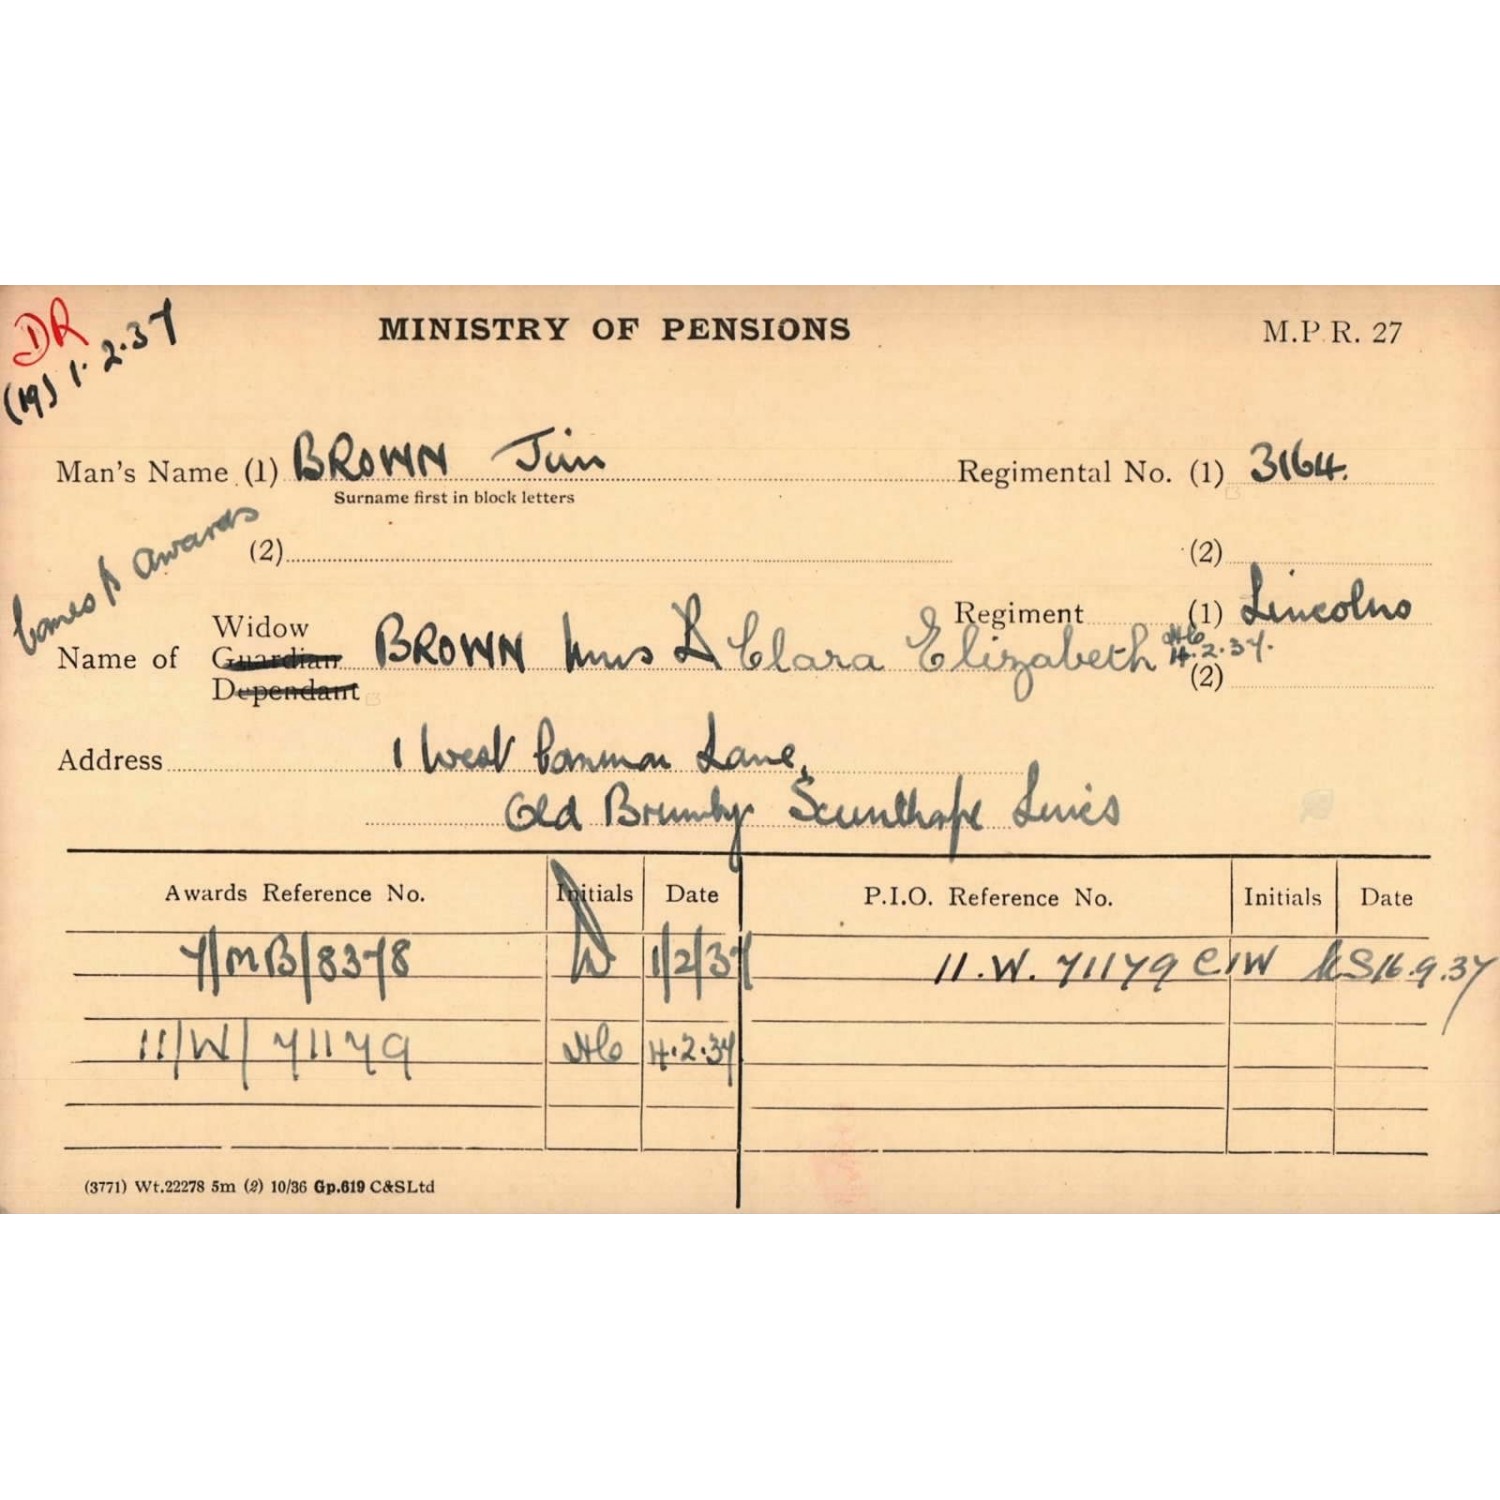 DR
(19) 1.2.37
MINISTRY OF PENSIONS
M.P.R. 27
Man's Name (1) BROWN Jim
Regimental No. (1) 3164.
Surname first in block letters
Awards
(2)
(2)
Regiment (1) Lincolns
Name of Widow Guardian Dependant BROWN Mrs Clara Elizabeth
4.2.37.
(2)
Address 1 West Common Lane,
Old Brumby Scunthorpe Lincs
Awards Reference No. Initials Date P.I.O. Reference No. Initials Date
7/MB/8378 1/2/37 11.W.71179 C.I.W KS 16.9.37
11/W/71179 4.2.37
(3771) Wt.22278 5m (2) 10/36 Gp.619 C&SLtd